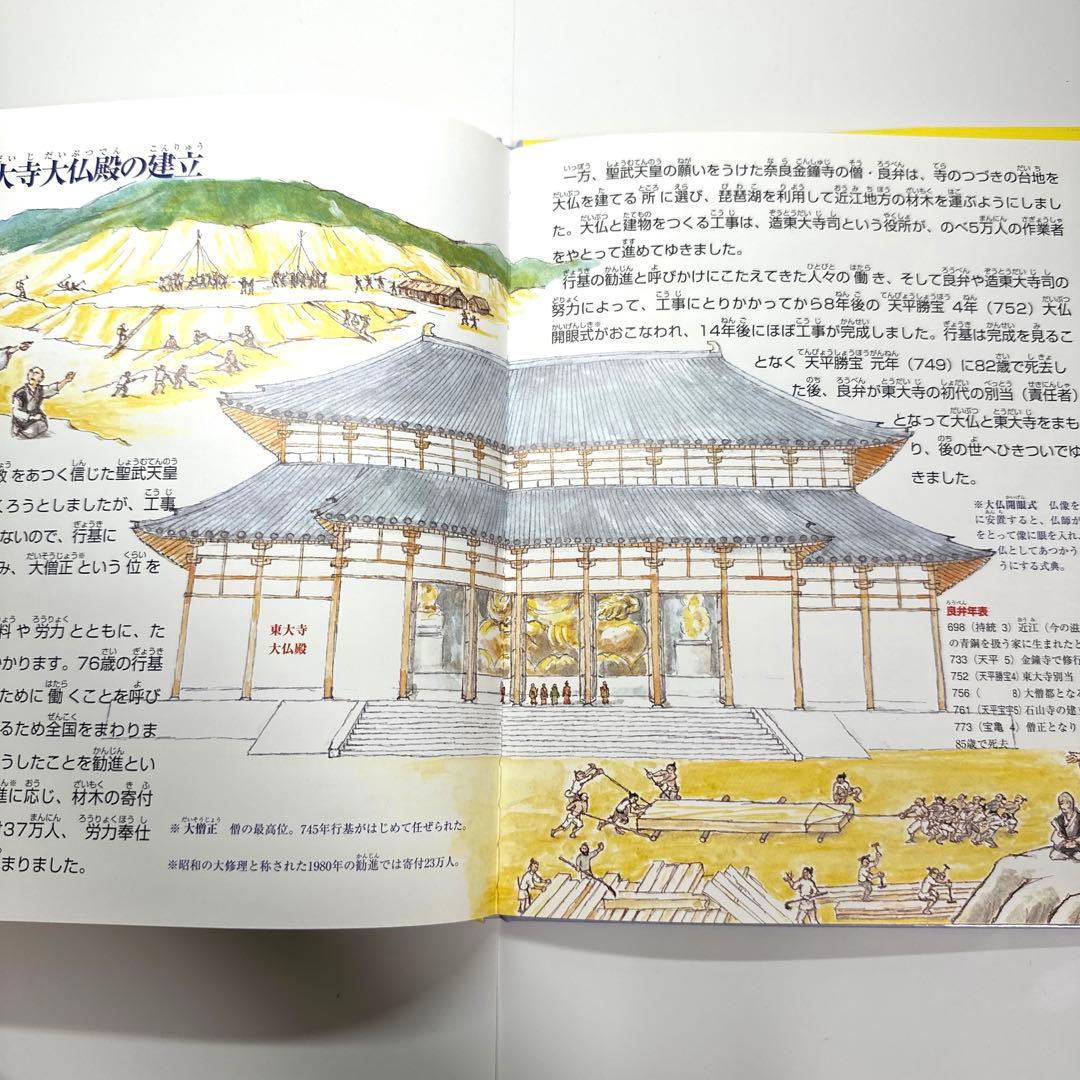 大寺大仏殿の建立
教をあつく信じた聖武天皇
くろうとしましたが、工事
ないので、行基に
み、大僧正という位を
料や労力とともに、た
かります。76歳の行基
ために働くことを呼び
るため全国をまわりま
うしたことを勧進とい
進に応じ、材木の寄付
37万人、労力奉仕
まりました。
東大寺
大仏殿
※大僧正 僧の最高位。745年行基がはじめて任ぜられた。
※昭和の大修理と称された1980年の勧進では寄付23万人。
一方、聖武天皇の願いをうけた奈良金鐘寺の僧・良弁は、寺のつづきの台地を
大仏を建てる所に選び、琵琶湖を利用して近江地方の材木を運ぶようにしまし
た。大仏と建物をつくる工事は、造東大寺司という役所が、のべ5万人の作業者
をやとって進めてゆきました。
行基の勧進と呼びかけにこたえてきた人々の働き、そして良弁や造東大寺司の
努力によって、工事にとりかかってから8年後の天平勝宝4年（752）大仏
開眼式※がおこなわれ、14年後にほぼ工事が完成しました。行基は完成を見るこ
となく天平勝宝元年（749）に82歳で死去し
た後、良弁が東大寺の初代の別当（責任者）
となって大仏と東大寺をまも
り、後の世へひきついでゆ
きました。
※大仏開眼式 仏像を
に安置すると、仏師が
をとって像に眼を入れ、
仏としてあつかう
うにする式典。
良弁年表
698（持統 3）近江（今の滋
の青銅を扱う家に生まれたと
733（天平 5）金鐘寺で修行
752（天平勝宝4）東大寺別当
756（ 8）大僧都となる
761（天平宝字5）石山寺の建立
773（宝亀 4）僧正となり
85歳で死去